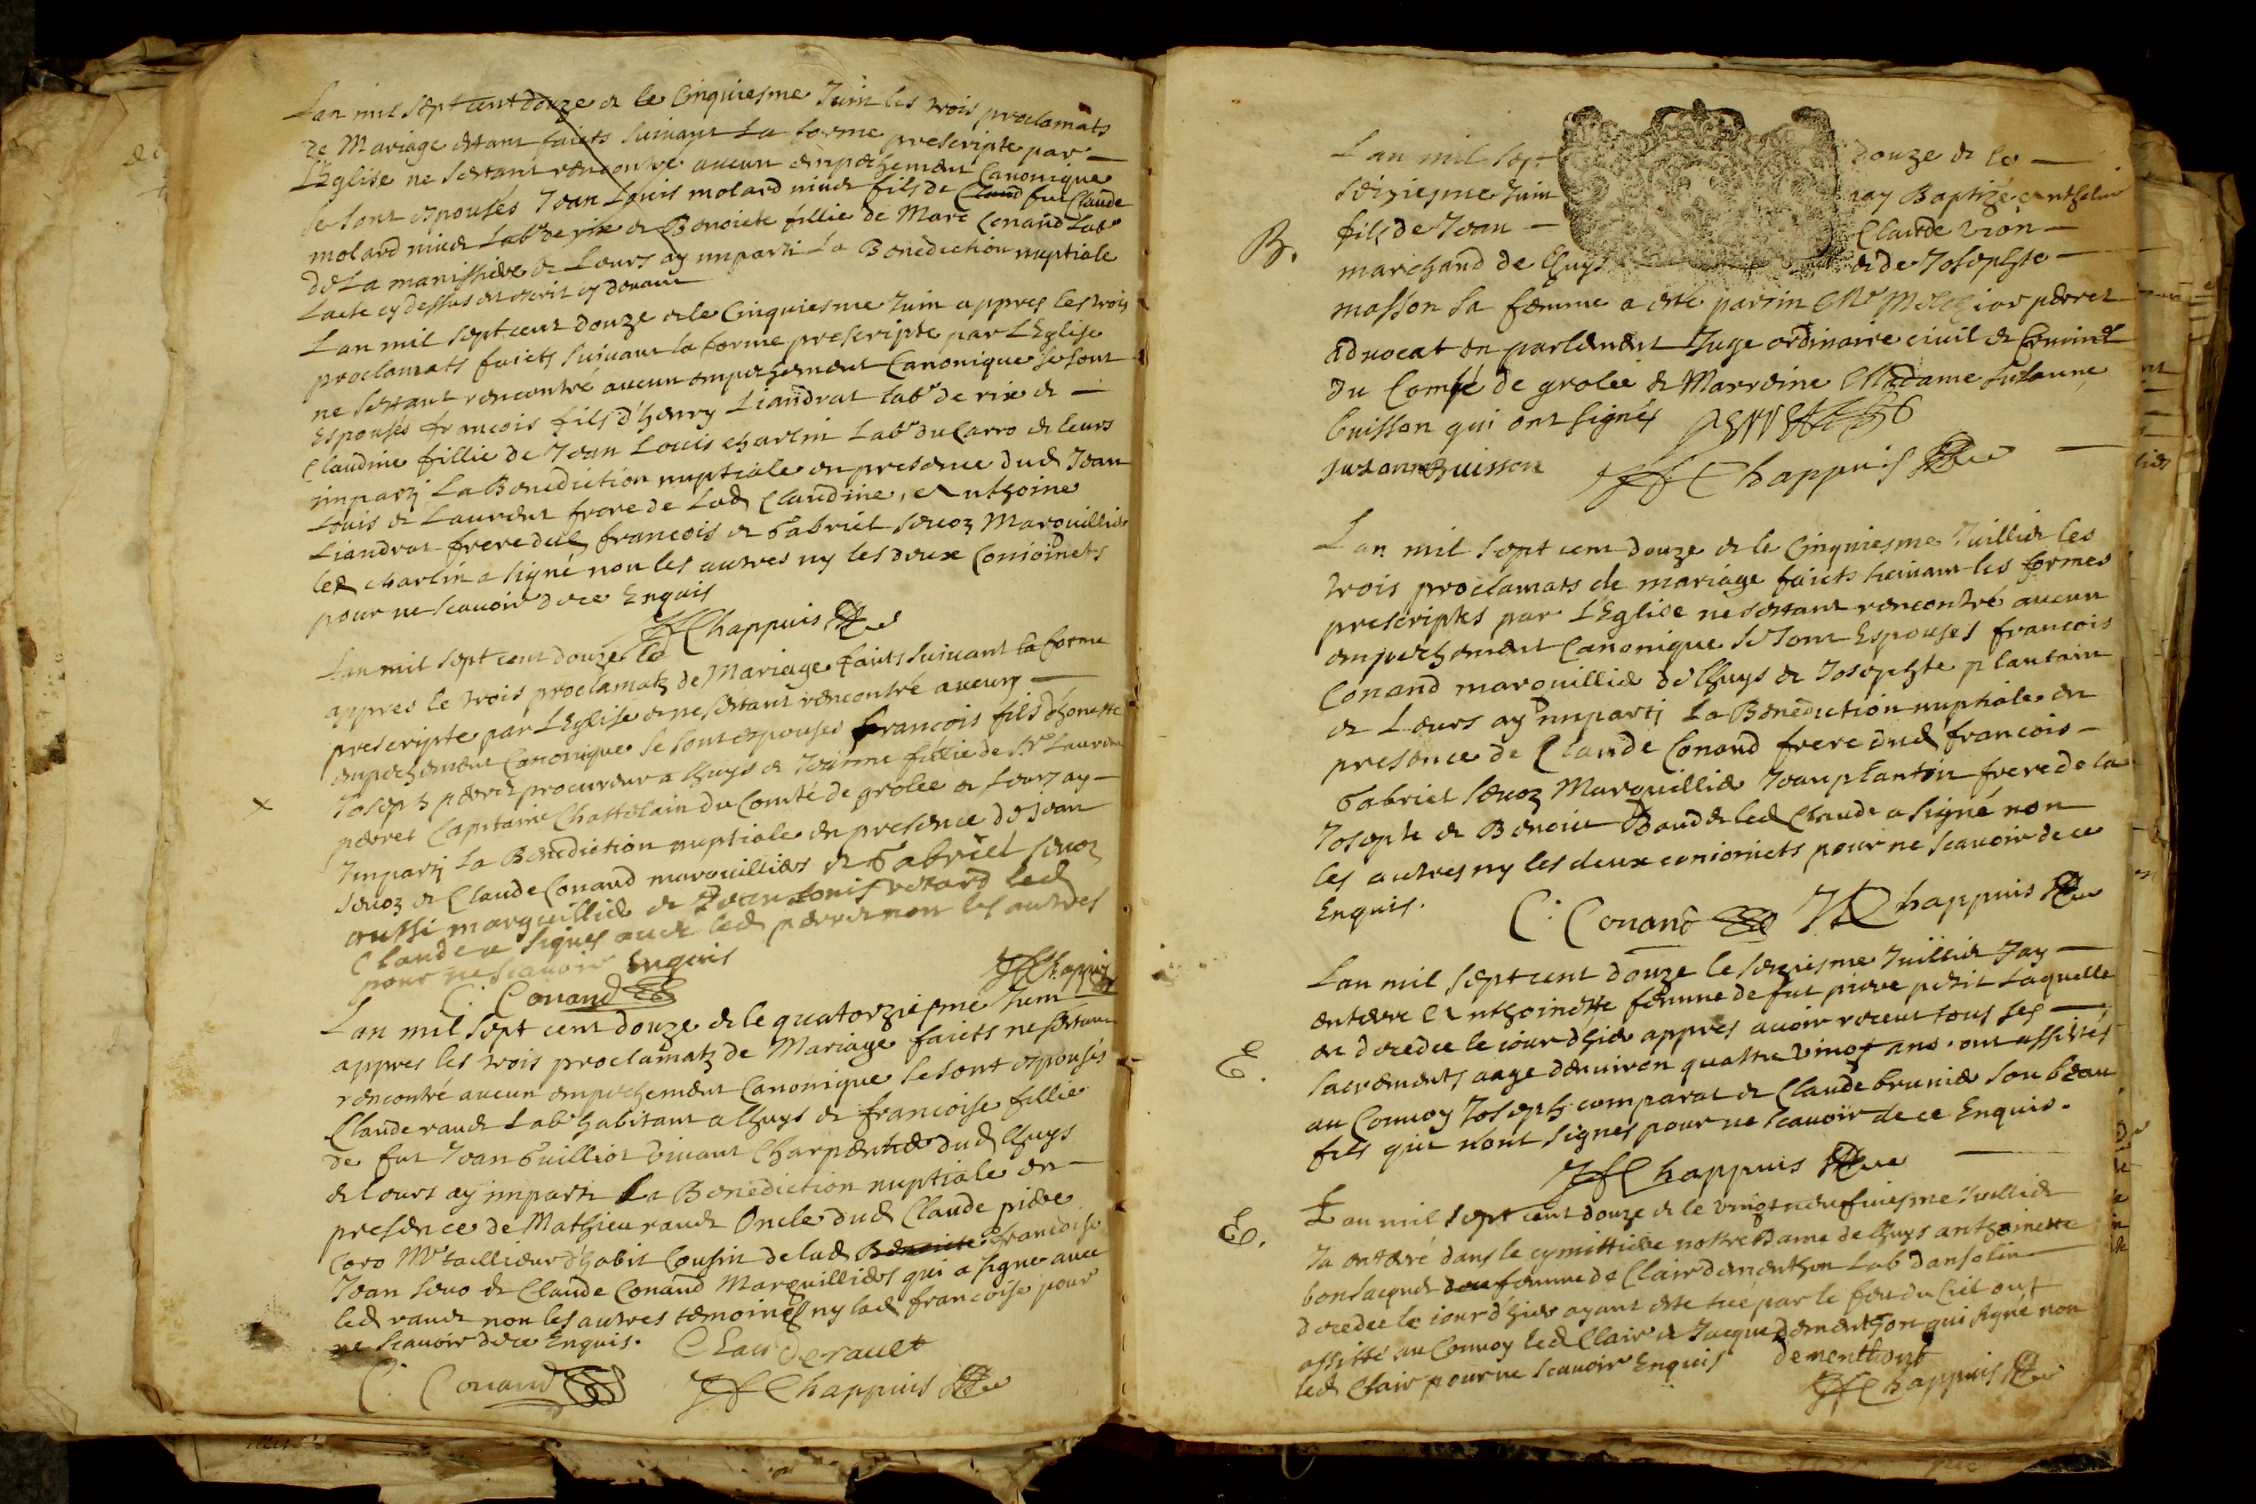 Lan mil sept cent douze et le Cinquiesme Juin les trois proclamats
de Mariage estant faicts suivant La forme prescripte par
L'Eglise ne sestant rencontré aucun empechement Canonique
se sont espousés Jean Louis molard niud fils de Claud fut Claude
molard niud Labr de rix et Benoiete fillie de Marc Conand Labr
de La manissiere et Leurs ay imparti La Benediction nuptiale
Lacte cy dessus est escrit cy devant
Lan mil sept cent douze et le Cinquiesme Juin appres les trois
proclamats faicts suivant la forme prescripte par L'Eglise
ne sestant rencontré aucun empechement Canonique se sont
Espousés francois fils d'henry Liandrat labr de rix et
Claudine fillie de Jean Louis charlin Labr du Carro et leurs
imparti La Benediction nuptiale en presence dud Jean
Louis et Laurent frere de Lad Claudine, Anthoine
Liandrat frere dud francois et Gabriel sevoz Marguillier
led charlin a signé non les autres ny les deux Conioincts
pour ne scavoir de ce Enquis
JfChappuis
Lan mil sept cent douze le
appres le trois proclamatz de Mariage faicts suivant la forme
prescripte par L'Eglise et ne sestant rencontré aucung
empechement Canonique se sont espousés francois fils d'honeste
Joseph perret procureur a lhuys et fillie de Sr Laurent
perret Capitaine Chattelain du Comté de grolee et Leurs ay
Imparti La Benediction nuptiale en presence de Jean
sevoz et Claude Conand marguilliers et Gabriel sevoz
aussi marguillier et Jean Louis led
Claude a signés avec led perret non les autres
pour ne scavoir Enquis
C. Conand JfChappuis
Lan mil sept cent douze et le quatorziesme Juin
appres les trois proclamatz de Mariage faicts ne sestant
rencontré aucun empechement Canonique se sont espousés
Claude raud Labr habitant a lhuys et francoise fillie
de fut Jean Guilliot vivant Charpentier dud lhuys
et leurs ay imparti La Benediction nuptiale en
presence de Mathieu raud Oncle dud Claude piere
Caro Mr taillieur d'habit Cousin de lad Benoiete francoise
Jean sevo et Claude Conand Marguilliers qui a signe avec
led raud non les autres temoins ny lad francoise pour
ne scavoir de ce Enquis. Claude rault
C. Conand JfChappuis
Lan mil sept douze et le
seiziesme Juin jay Baptizé anthelme
B.
fils de Jean Claude
marchand de lhuys et de Josephte
masson sa femme a esté parrin Mr Melchior perret
advocat en parlement Juge ordinaire civil et Criminel
du Comté de grolee et Marreine Madame Susanne
buisson qui ont signés perret
suzanne buisson JfChappuis
Lan mil sept cent douze et le Cinquiesme Juillid les
trois proclamats de mariage faicts suivant les formes
prescriptes par L'Eglise ne sestant rencontré aucun
empechement Canonique se sont Espousés francois
Conand marguillid de lhuys et Josephte plantain
et Leurs ay imparti La Benediction nuptiale en
presence de Claude Conand frere dud francois
Gabriel sevoz Marguillid Jean plantin frere de la
Josephte et Benoiet led Claude a signé non
les autres ny les deux conioincts pour ne scavoir de ce
Enquis. C. Conand JfChappuis
Lan mil sept cent douze le seziesme Juillid Jay
enterre Anthoinette femme de fut piere petit Laquelle
E.
est decedee le iour dhier appres avoir receu tous ses
sacrements aage denviron quattre vingt ans. ont assistés
au Convoy Joseph comparat et Claude brunid son beau
fils qui n'ont signés pour ne scavoir de ce Enquis.
JfChappuis
E.
Lan mil sept cent douze et le vingt neufviesme Juillid
Ja enterré dans le cymittiere nostre Dame de lhuys anthoinette
femme de Clair dementhon Lab danselin
decedee le iour d'hier ayant esté tué par le feu du Ciel ont
assisté au Convoy led Clair et Jacque dementhon qui signé non
led Clair pour ne scavoir Enquis dementhont
JfChappuis